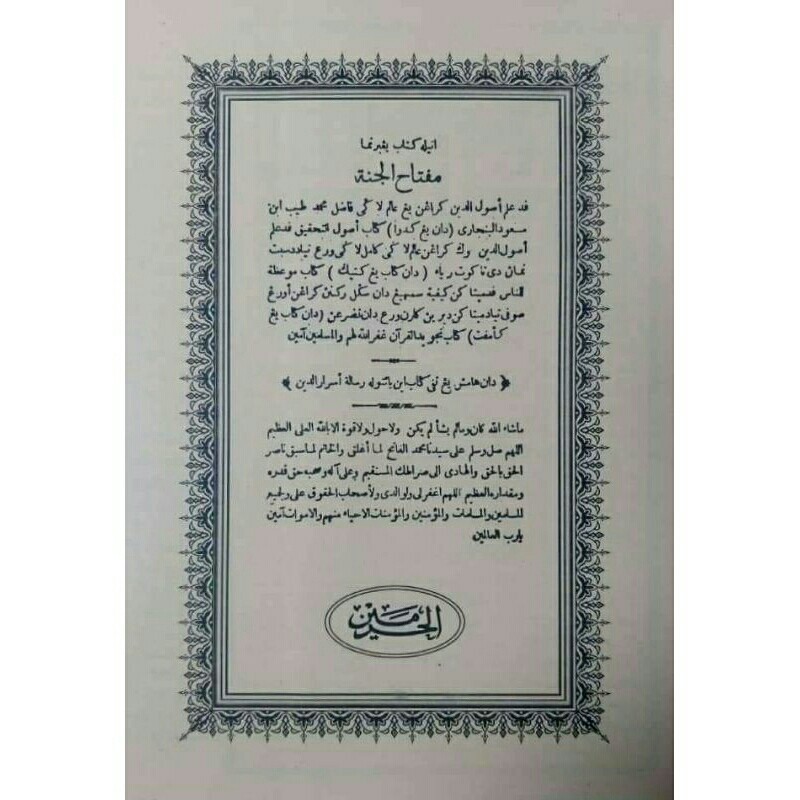 انيله كتاب يڠبرنما
مفتاح الجنة
فد علم أصول الدين كراڠن يڠ عالم لاڬى فاضل محمد طيب ابن
مسعود البنجارى (دان يڠ كدوا) كتاب أصول التحقيق فد علم
أصول الدين كراڠن عالم لاڬى كامل لاڬى ورع تياد دسبت
نمان دى تاكوت رياء (دان كتاب يڠ كتيڬ) كتاب موعظة
للناس دان سڬل ركنن كراڠن أورڠ
صوفى تياد ديرين كارن ورع دان (دان كتاب يڠ
كأمفت) كتاب تجويد القرآن غفر الله لهم والمسلمين آمين
﴿ دان هامش يڠ ففى كتاب اين يائتوله رسالة أسرار الدين ﴾
ماشاء الله كان ومالم يشأ لم يكن ولاحول ولاقوة الابالله العلى العظيم
اللهم صل وسلم على سيدنا محمد الفاتح لما أغلق والخاتم لما سبق ناصر
الحق بالحق والهادى الى صراطك المستقيم وعلى آله وصحبه حق قدره
ومقداره العظيم اللهم اغفرلى ولوالدى ولأصحاب الحقوق على ولجميع
المسلمين والمسلمات والمؤمنين والمؤمنات الاحياء منهم والاموات آمين
يارب العالمين
الحرمين